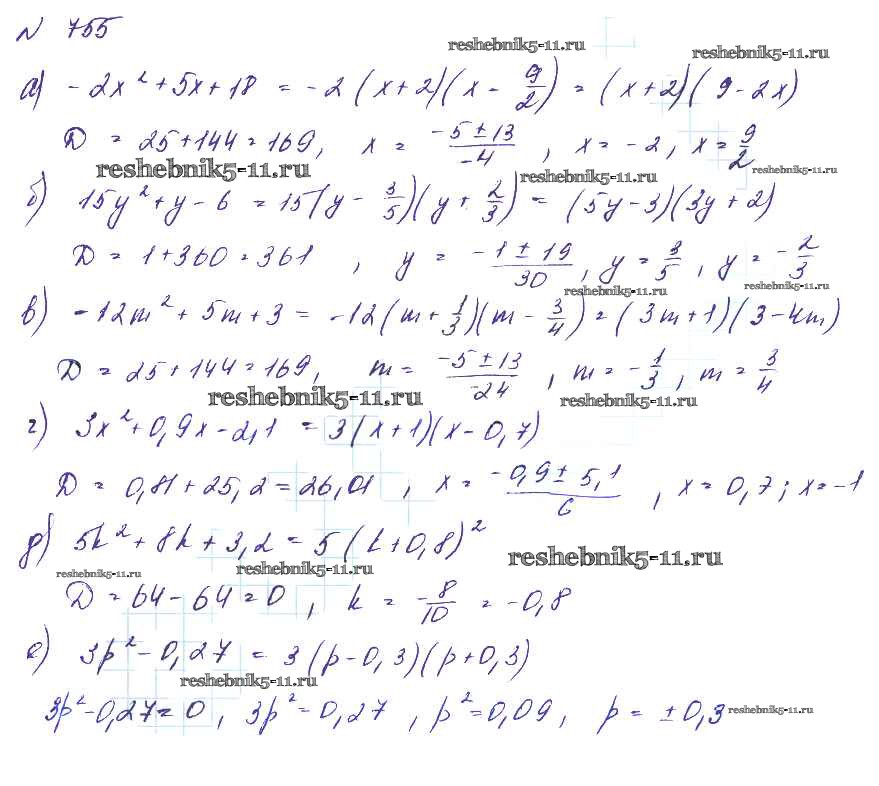 N 755
reshebnik5-11.ru
reshebnik5-11.ru
а) -2x² + 5x + 18 = -2(x+2)(x - 9/2) = (x+2)(9-2x)
D = 25+144 = 169, x = (-5 ± 13)/-4, x = -2, x = 9/2
reshebnik5-11.ru
reshebnik5-11.ru
reshebnik5-11.ru
б) 15y² + y - 6 = 15(y - 3/5)(y + 2/3) = (5y-3)(3y+2)
D = 1+360 = 361, y = (-1 ± 19)/30, y = 3/5, y = -2/3
reshebnik5-11.ru
reshebnik5-11.ru
в) -12m² + 5m + 3 = -12(m + 1/3)(m - 3/4) = (3m+1)(3-4m)
D = 25+144 = 169, m = (-5 ± 13)/-24, m = -1/3, m = 3/4
reshebnik5-11.ru
reshebnik5-11.ru
г) 3x² + 0,9x - 2,1 = 3(x+1)(x-0,7)
D = 0,81 + 25,2 = 26,01, x = (-0,9 ± 5,1)/6, x = 0,7; x = -1
д) 5k² + 8k + 3,2 = 5(k+0,8)²
reshebnik5-11.ru
reshebnik5-11.ru
reshebnik5-11.ru
D = 64 - 64 = 0, k = -8/10 = -0,8
е) 3p² - 0,27 = 3(p-0,3)(p+0,3)
reshebnik5-11.ru
3p² - 0,27 = 0, 3p² = 0,27, p² = 0,09, p = ±0,3
reshebnik5-11.ru